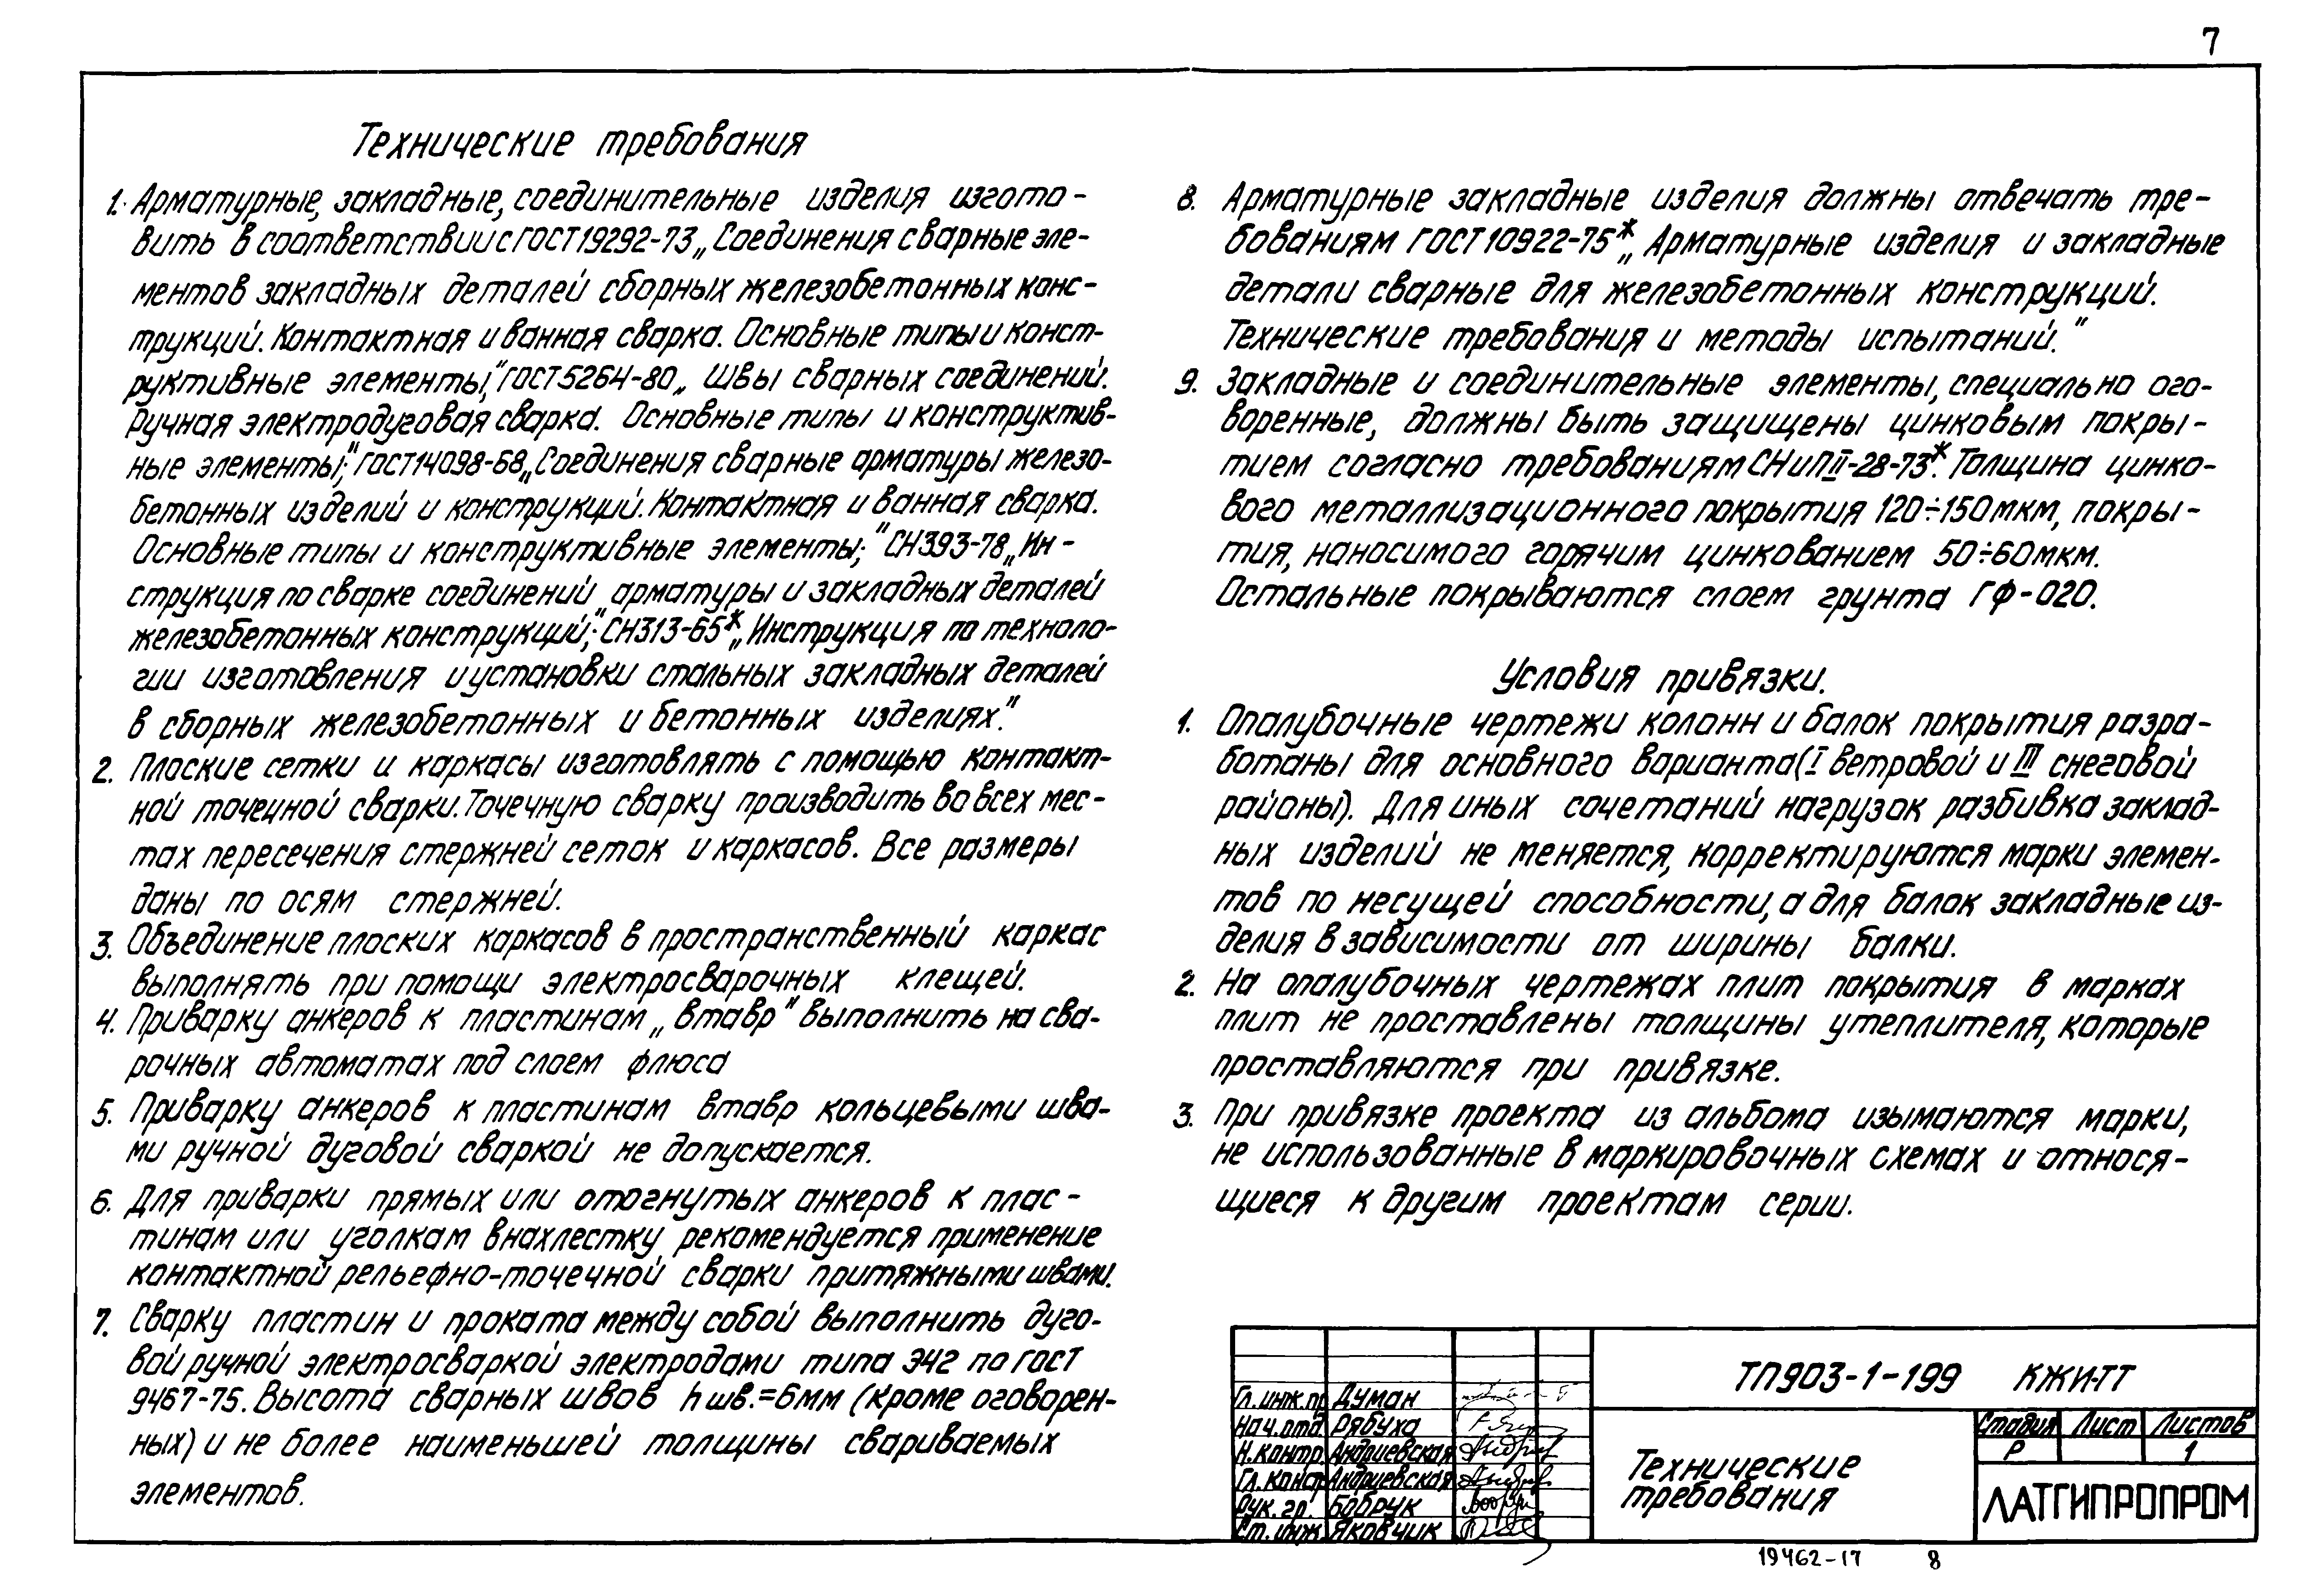 7
Технические требования
1. Арматурные, закладные, соединительные изделия изгото-
вить в соответствии с ГОСТ 19292-73 „Соединения сварные эле-
ментов закладных деталей сборных железобетонных конс-
трукций. Контактная и ванная сварка. Основные типы и конст-
руктивные элементы;" ГОСТ 5264-80 „ Швы сварных соединений.
Ручная электродуговая сварка. Основные типы и конструктив-
ные элементы;" ГОСТ 14098-68 „Соединения сварные арматуры железо-
бетонных изделий и конструкций. Контактная и ванная сварка.
Основные типы и конструктивные элементы;" СН 393-78 „Ин-
струкция по сварке соединений арматуры и закладных деталей
железобетонных конструкций;" СН 313-65* „Инструкция по техноло-
гии изготовления и установки стальных закладных деталей
в сборных железобетонных и бетонных изделиях."
2. Плоские сетки и каркасы изготовлять с помощью контакт-
ной точечной сварки. Точечную сварку производить во всех мес-
тах пересечения стержней сеток и каркасов. Все размеры
даны по осям стержней.
3. Объединение плоских каркасов в пространственный каркас
выполнять при помощи электросварочных клещей.
4. Приварку анкеров к пластинам „втавр" выполнить на сва-
рочных автоматах под слоем флюса
5. Приварку анкеров к пластинам втавр кольцевыми шва-
ми ручной дуговой сваркой не допускается.
6. Для приварки прямых или отогнутых анкеров к плас-
тинам или уголкам внахлестку рекомендуется применение
контактной рельефно-точечной сварки притяжными швами.
7. Сварку пластин и проката между собой выполнить дуго-
вой ручной электросваркой электродами типа Э42 по ГОСТ
9467-75. Высота сварных швов hшв.=6мм (кроме оговорен-
ных) и не более наименьшей толщины свариваемых
элементов.
8. Арматурные закладные изделия должны отвечать тре-
бованиям ГОСТ 10922-75* „Арматурные изделия и закладные
детали сварные для железобетонных конструкций.
Технические требования и методы испытаний."
9. Закладные и соединительные элементы, специально ого-
воренные, должны быть защищены цинковым покры-
тием согласно требованиям СНиП II-28-73*. Толщина цинко-
вого металлизационного покрытия 120÷150мкм, покры-
тия, наносимого горячим цинкованием 50÷60мкм.
Остальные покрываются слоем грунта ГФ-020.
Условия привязки.
1. Опалубочные чертежи колонн и балок покрытия разра-
ботаны для основного варианта (I ветровой и III снеговой
районы). Для иных сочетаний нагрузок разбивка заклад-
ных изделий не меняется, корректируются марки элемен-
тов по несущей способности, а для балок закладные из-
делия в зависимости от ширины балки.
2. На опалубочных чертежах плит покрытия в марках
плит не проставлены толщины утеплителя, которые
проставляются при привязке.
3. При привязке проекта из альбома изымаются марки,
не использованные в маркировочных схемах и относя-
щиеся к другим проектам серии.
ТП903-1-199 КЖИ-ТТ
Гл. инж. пр Думан
Нач. отд Рябуха
Н. контр Андриевская
Гл. констр Андриевская
Рук. гр. Бобрук
Ст. инж Яковчик
Технические
требования
Стадия Лист Листов
Р 1
ЛАТГИПРОПРОМ
19462-17 8